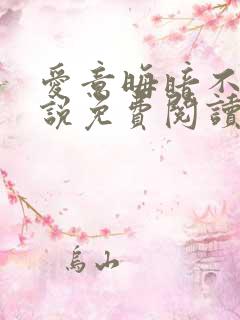 愛意晦暗不
說免費閱讀
烏山